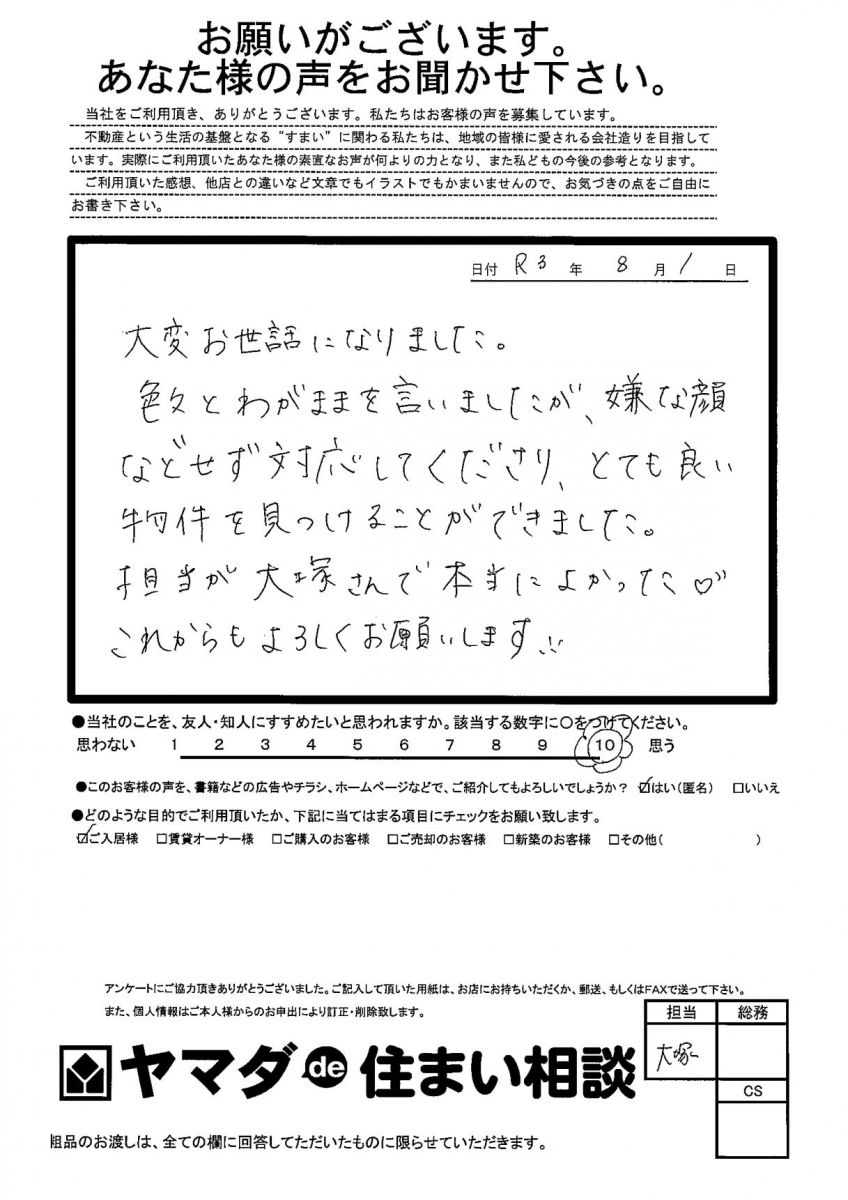 お願いがございます。
あなた様の声をお聞かせ下さい。
当社をご利用頂き、ありがとうございます。私たちはお客様の声を募集しています。
不動産という生活の基盤となる“すまい”に関わる私たちは、地域の皆様に愛される会社造りを目指して
います。実際にご利用頂いたあなた様の素直なお声が何よりの力となり、また私どもの今後の参考となります。
ご利用頂いた感想、他店との違いなど文章でもイラストでもかまいませんので、お気づきの点をご自由に
お書き下さい。
日付 R3 年 8 月 1 日
大変お世話になりました。
色々とわがままを言いましたが、嫌な顔
などせず対応してくださり、とても良い
物件を見つけることができました。
担当が大塚さんで本当によかった♡
これからもよろしくお願いします!!
●当社のことを、友人・知人にすすめたいと思われますか。該当する数字に○をつけてください。
思わない 1 2 3 4 5 6 7 8 9 10 思う
●このお客様の声を、書籍などの広告やチラシ、ホームページなどで、ご紹介してもよろしいでしょうか? ☑はい(匿名) □いいえ
●どのような目的でご利用頂いたか、下記に当てはまる項目にチェックをお願い致します。
☑ご入居様 □賃貸オーナー様 □ご購入のお客様 □ご売却のお客様 □新築のお客様 □その他( )
アンケートにご協力頂きありがとうございました。ご記入して頂いた用紙は、お店にお持ちいただくか、郵送、もしくはFAXで送って下さい。
また、個人情報はご本人様からのお申出により訂正・削除致します。
担当 総務
大塚
CS
ヤマダde住まい相談
粗品のお渡しは、全ての欄に回答してただいたものに限らせていただきます。